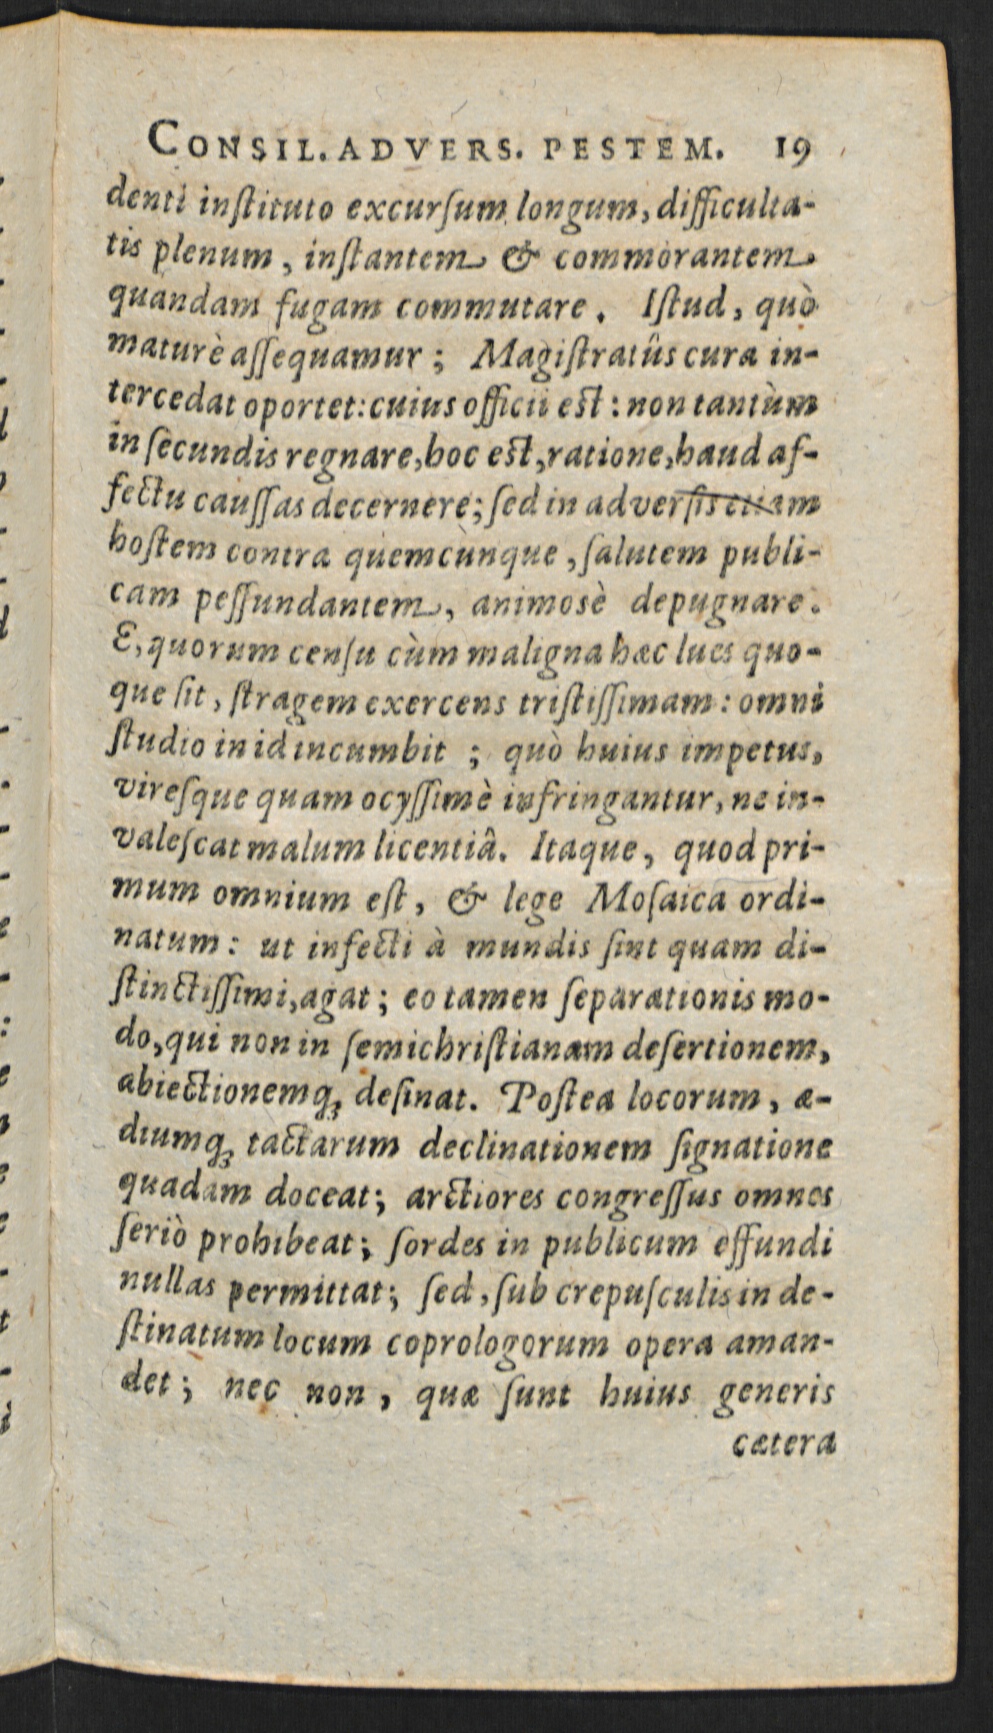 CONSIL. ADVERS. PESTEM. 19
denti inſtituto excurſum longum, difficulta-
tis plenum, inſtantem & commorantem
quandam fugam commutare. Iſtud, quò
maturè aſſequamur; Magiſtratûs cura in-
tercedat oportet: cuius officii eſt: non tantùm
in ſecundis regnare, hoc eſt, ratione, haud af-
fectu cauſſas decernere; ſed in adverſis etiam
hoſtem contra quemcùnque, ſalutem publi-
cam peſſundantem, animosè depugnare.
E, quorum cenſu cùm maligna hæc lues quo-
que ſit, ſtragem exercens triſtiſſimam: omni
ſtudio in id incumbit; quò huius impetus,
vireſque quam ocyſſimè infringantur, ne in-
valeſcat malum licentiâ. Itaque, quod pri-
mum omnium eſt, & lege Moſaica ordi-
natum: ut infecti à mundis ſint quam di-
ſtinctiſſimi, agat; eo tamen ſeparationis mo-
do, qui non in ſemichriſtianam deſertionem,
abiectionemq; deſinat. Poſtea locorum, æ-
diumq; tactarum declinationem ſignatione
quadam doceat; arctiores congreſſus omnes
ſeriò prohibeat; ſordes in publicum effundi
nullas permittat; ſed, ſub crepuſculis in de-
ſtinatum locum coprologorum opera aman-
det; nec non, quæ ſunt huius generis
cætera